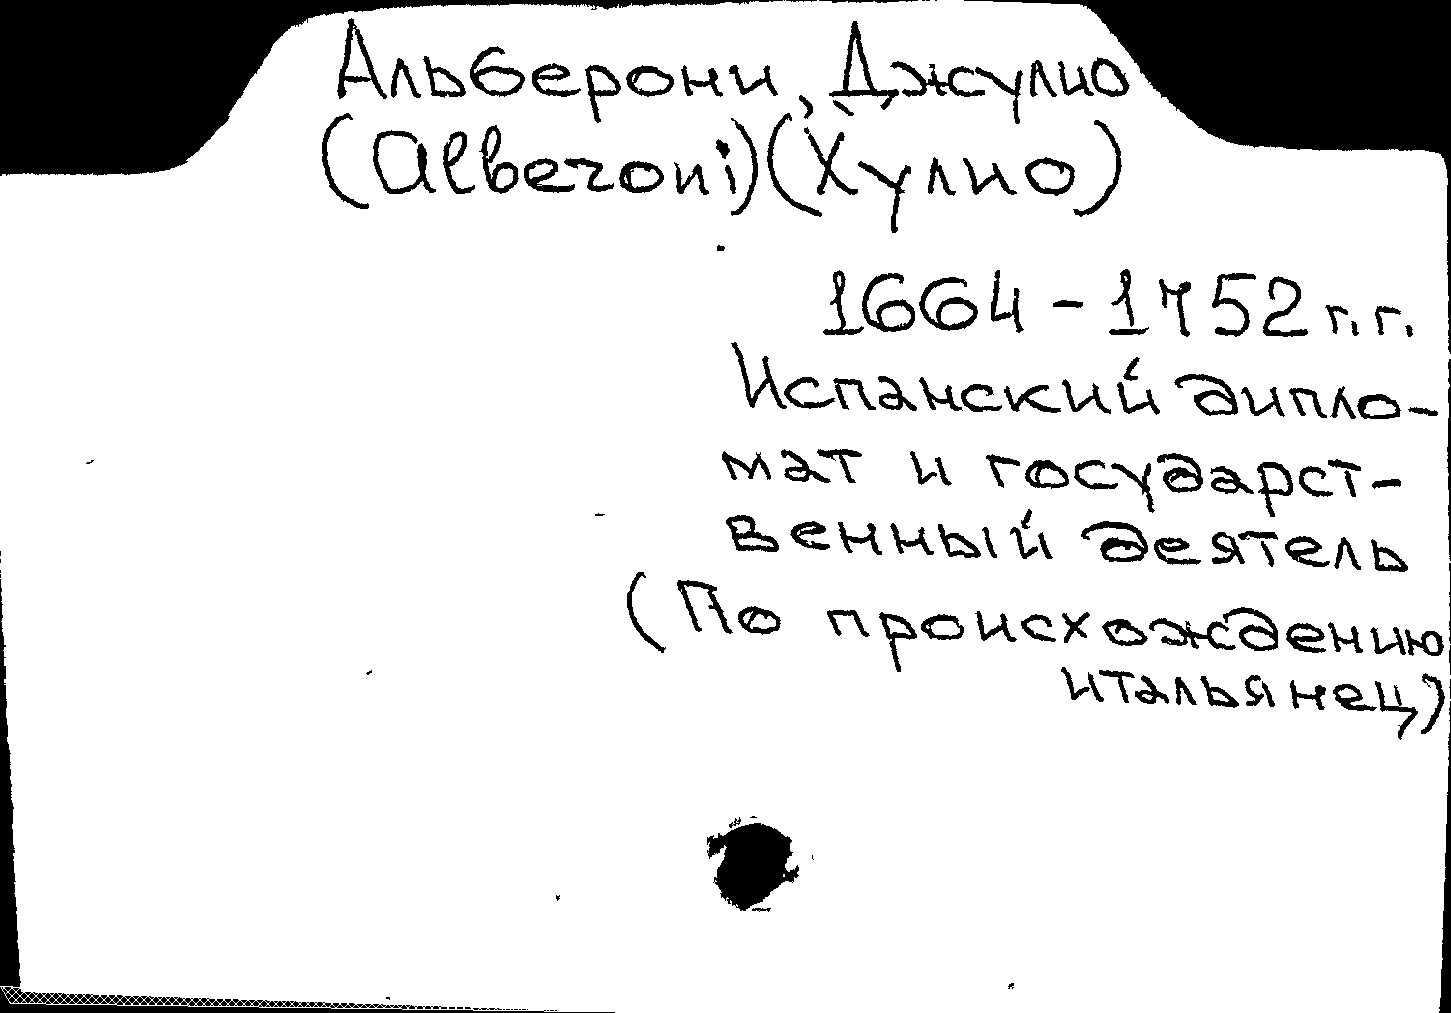 Альберони, Джулио
(Alberoni) (Хулио)
1664-1752 г.г.
Испанский дипло-
мат и государст-
венный деятель
(По происхождению
итальянец)